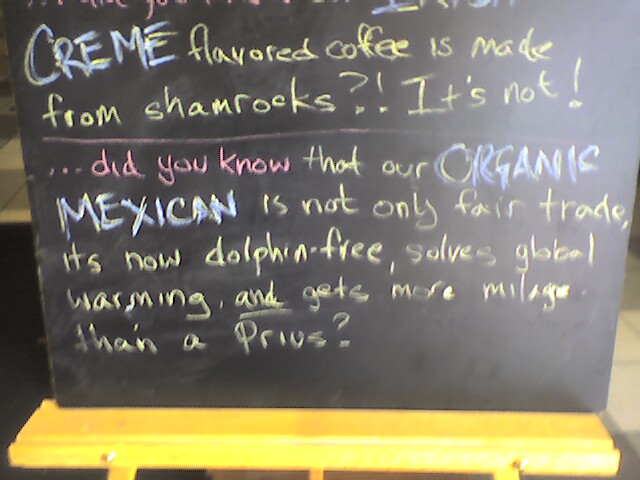 ...did you know IRISH
CREME flavored coffee is made
from shamrocks?! It's not!
...did you know that our ORGANIC
MEXICAN is not only fair trade,
its now dolphin-free, solves global
warming, and gets more milage
than a Prius?